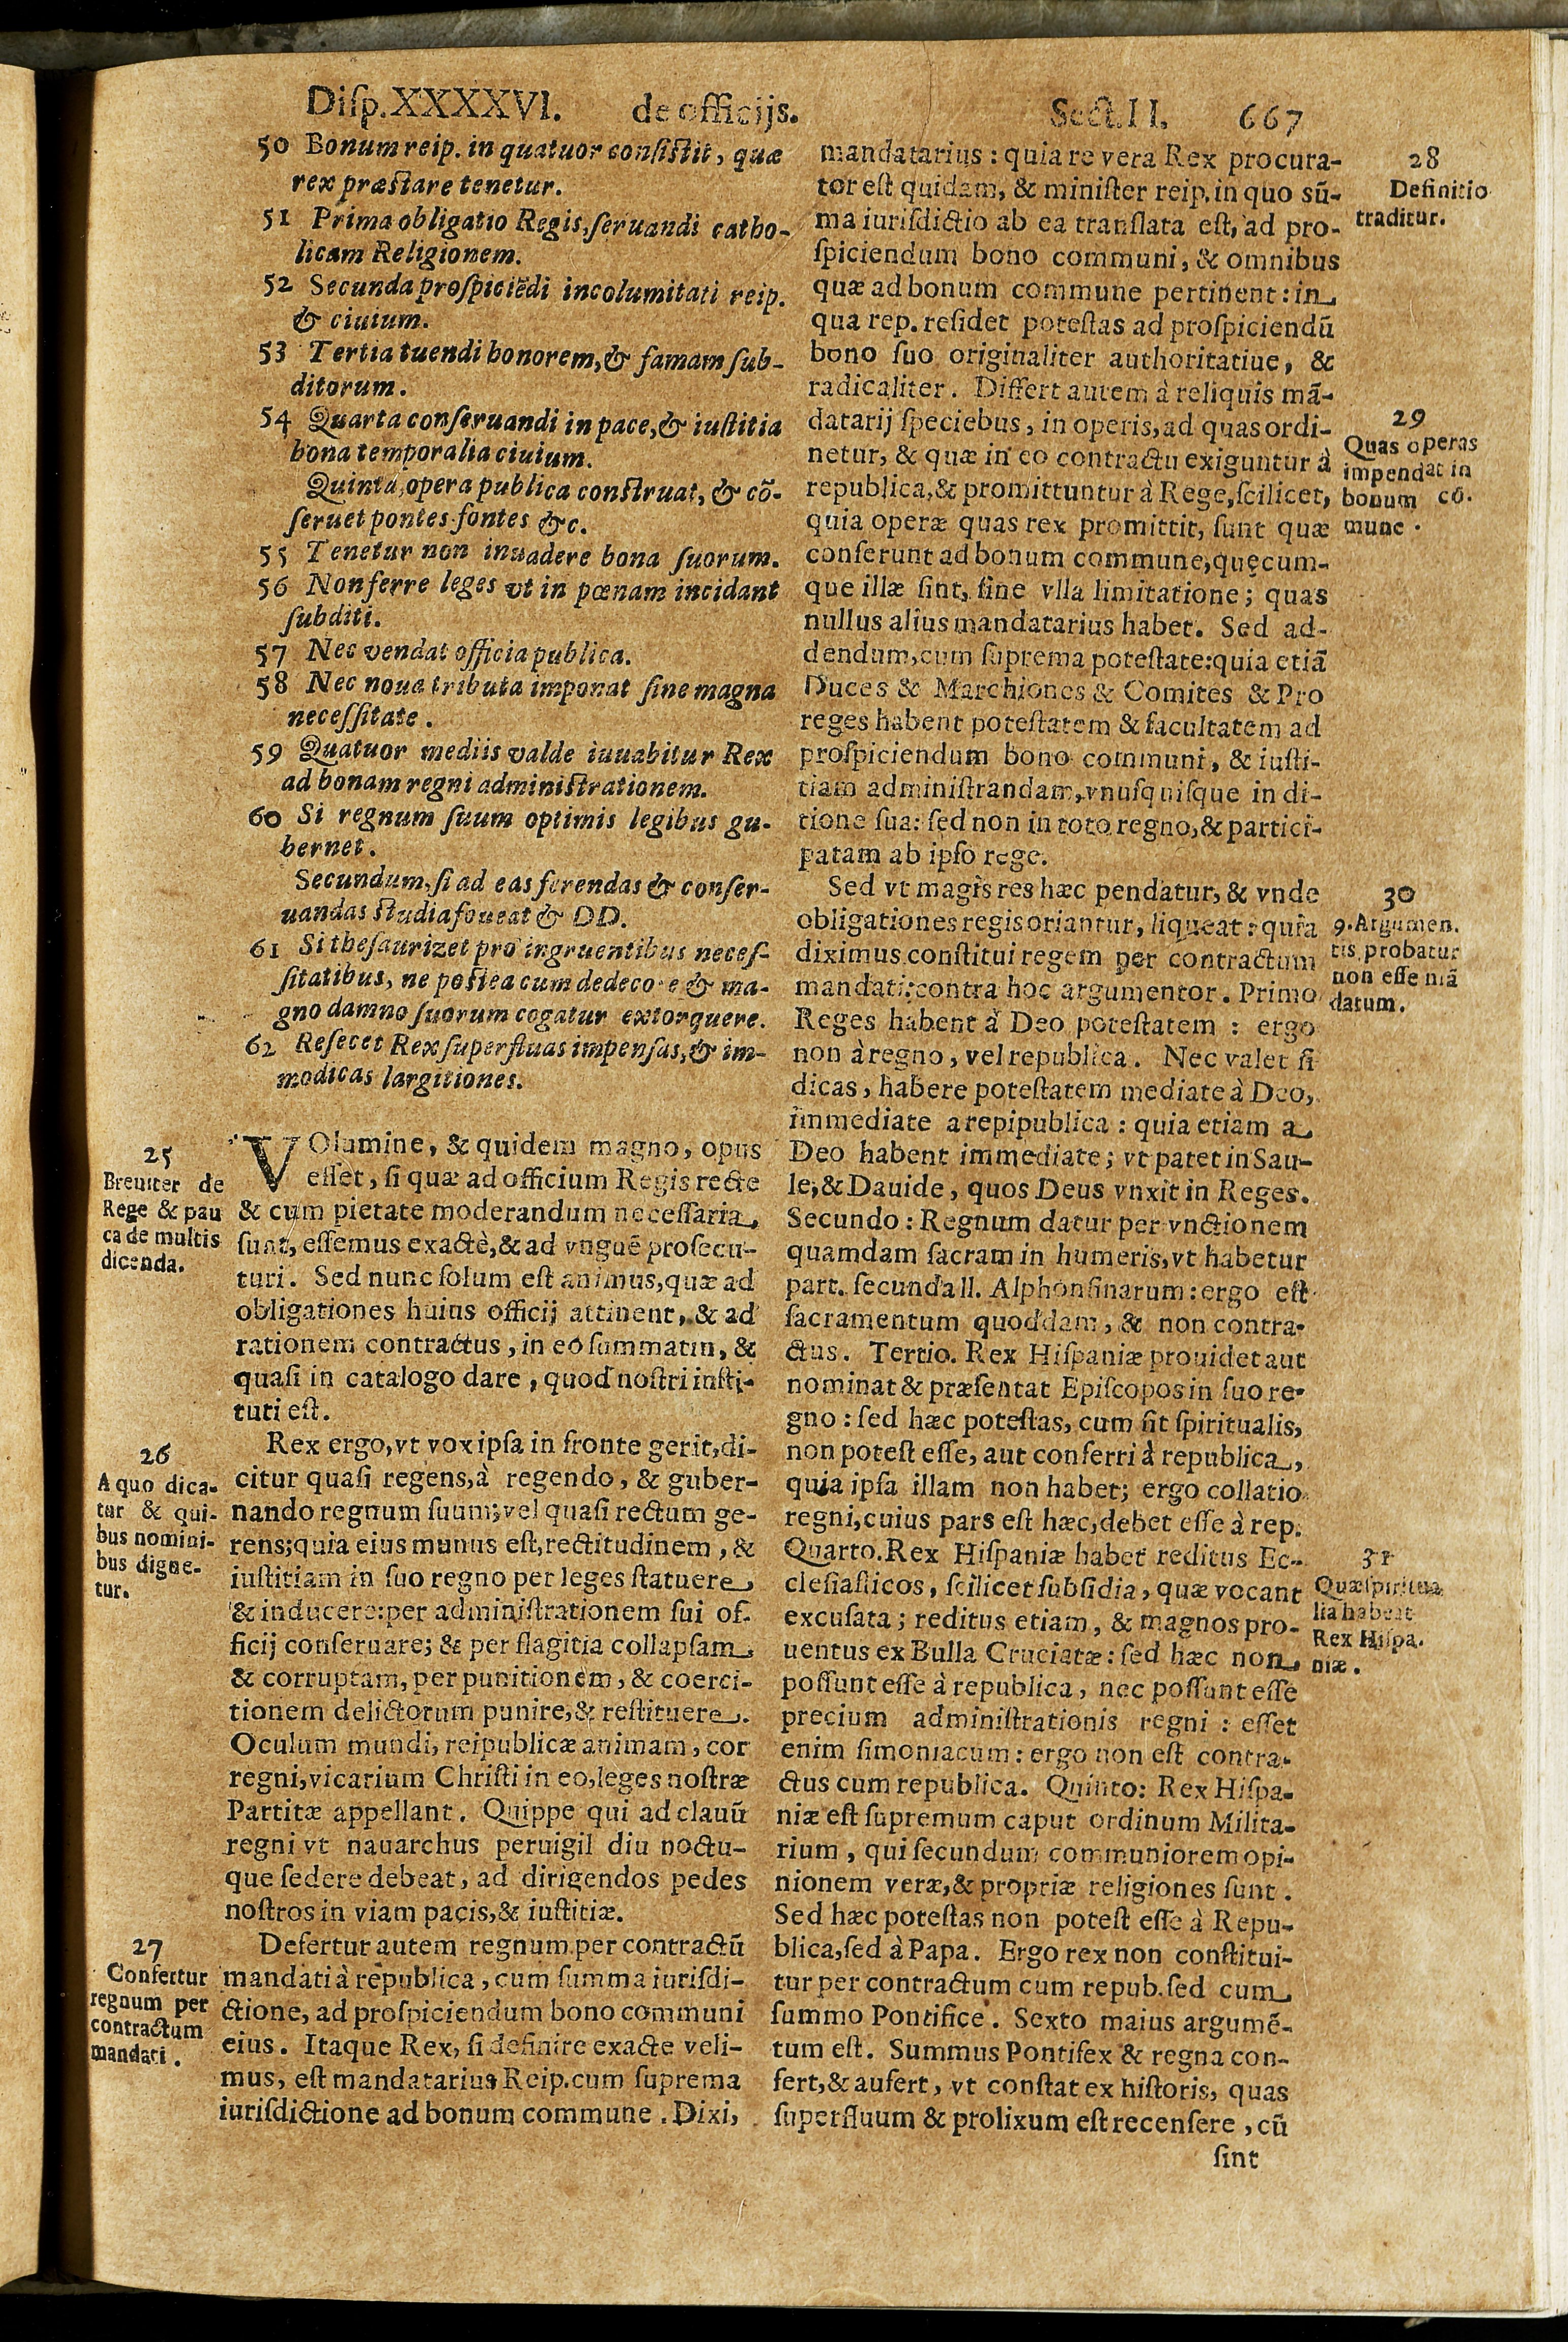 Disp. XXXXVI. de officijs. Sect. II. 667
50 Bonum reip. in quatuor consistit, quæ
rex præstare tenetur.
51 Prima obligatio Regis, seruandi catho-
licam Religionem.
52 Secunda prospiciēdi incolumitati reip.
& ciuium.
53 Tertia tuendi honorem, & famam sub-
ditorum.
54 Quarta conseruandi in pace, & iustitia
bona temporalia ciuium.
Quinta, opera publica construat, & cō-
seruet pontes fontes &c.
55 Tenetur non inuadere bona suorum.
56 Non ferre leges vt in pœnam incidant
subditi.
57 Nec vendat officia publica.
58 Nec noua tributa imponat sine magna
necessitate.
59 Quatuor mediis valde iuuabitur Rex
ad bonam regni administrationem.
60 Si regnum suum optimis legibus gu-
bernet.
Secundum, si ad eas ferendas & conser-
uandas studia foueat & DD.
61 Si thesaurizet pro ingruentibus neces-
sitatibus, ne postea cum dedecore & ma-
gno damno suorum cogatur extorquere.
62 Resecet Rex superfluas impensas, & im-
modicas largitiones.
25
Breuiter de
Rege & pau
ca de multis
dicenda.
VOlumine, & quidem magno, opus
esset, si quæ ad officium Regis recte
& cum pietate moderandum necessaria
sunt, essemus exactè, & ad vnguē prosecu-
turi. Sed nunc solum est animus, quæ ad
obligationes huius officij attinent, & ad
rationem contractus, in eo summatim, &
quasi in catalogo dare, quod nostri insti-
tuti est.
26
A quo dica-
tur & qui-
bus nomini-
bus digne-
tur.
Rex ergo, vt vox ipsa in fronte gerit, di-
citur quasi regens, à regendo, & guber-
nando regnum suum; vel quasi rectum ge-
rens; quia eius munus est, rectitudinem, &
iustitiam in suo regno per leges statuere
& inducere: per administrationem sui of-
ficij conseruare; & per flagitia collapsam
& corruptam, per punitionem, & coerci-
tionem delictorum punire, & restituere.
Oculum mundi, reipublicæ animam, cor
regni, vicarium Christi in eo, leges nostræ
Partitæ appellant. Quippe qui ad clauū
regni vt nauarchus peruigil diu noctu-
que sedere debeat, ad dirigendos pedes
nostros in viam pacis, & iustitiæ.
27
Confertur
regnum per
contractum
mandati.
Defertur autem regnum per contractū
mandati à republica, cum summa iurisdi-
ctione, ad prospiciendum bono communi
eius. Itaque Rex, si definire exacte veli-
mus, est mandatarius Reip. cum suprema
iurisdictione ad bonum commune. Dixi,
mandatarius: quia re vera Rex procura-
tor est quidam, & minister reip. in quo sū-
ma iurisdictio ab ea translata est, ad pro-
spiciendum bono communi, & omnibus
quæ ad bonum commune pertinent: in
qua rep. residet potestas ad prospiciendū
bono suo originaliter authoritatiue, &
radicaliter. Differt autem à reliquis mā-
datarij speciebus, in operis, ad quas ordi-
netur, & quæ in eo contractu exiguntur à
republica, & promittuntur à Rege, scilicet,
quia operæ quas rex promittit, sunt quæ
conferunt ad bonum commune, quęcum-
que illæ sint, sine vlla limitatione; quas
nullus alius mandatarius habet. Sed ad-
dendum, cum suprema potestate: quia etiā
Duces & Marchiones & Comites & Pro
reges habent potestatem & facultatem ad
prospiciendum bono communi, & iusti-
tiam administrandam, vnusquisque in di-
tione sua: sed non in toto regno, & partici-
patam ab ipso rege.
28
Definitio
traditur.
29
Quas operas
impendat in
bonum cō-
mune.
Sed vt magis res hæc pendatur, & vnde
obligationes regis oriantur, liqueat: quia
diximus constitui regem per contractum
mandati: contra hoc argumentor. Primo
Reges habent à Deo potestatem: ergo
non à regno, vel republica. Nec valet si
dicas, habere potestatem mediate à Deo,
immediate a repipublica: quia etiam a
Deo habent immediate; vt patet in Sau-
le, & Dauide, quos Deus vnxit in Reges.
Secundo: Regnum datur per vnctionem
quamdam sacram in humeris, vt habetur
part. secunda ll. Alphonsinarum: ergo est
sacramentum quoddam, & non contra-
ctus. Tertio. Rex Hispaniæ prouidet aut
nominat & præsentat Episcopos in suo re-
gno: sed hæc potestas, cum sit spiritualis,
non potest esse, aut conferri à republica,
quia ipsa illam non habet; ergo collatio
regni, cuius pars est hæc, debet esse à rep.
Quarto. Rex Hispaniæ habet reditus Ec-
clesiasticos, scilicet subsidia, quæ vocant
excusata; reditus etiam, & magnos pro-
uentus ex Bulla Cruciatæ: sed hæc non
possunt esse à republica, nec possunt esse
precium administrationis regni: esset
enim simoniacum: ergo non est contra-
ctus cum republica. Quinto: Rex Hispa-
niæ est supremum caput ordinum Milita-
rium, qui secundum communiorem opi-
nionem veræ, & propriæ religiones sunt.
Sed hæc potestas non potest esse à Repu-
blica, sed à Papa. Ergo rex non constitui-
tur per contractum cum repub. sed cum
summo Pontifice. Sexto maius argumē-
tum est. Summus Pontifex & regna con-
fert, & aufert, vt constat ex historis, quas
superfluum & prolixum est recensere, cū
30
9. Argumen.
tis probatur
non esse mā
datum.
31
Quæ spiritua
lia habeat
Rex Hispa-
niæ.
sint